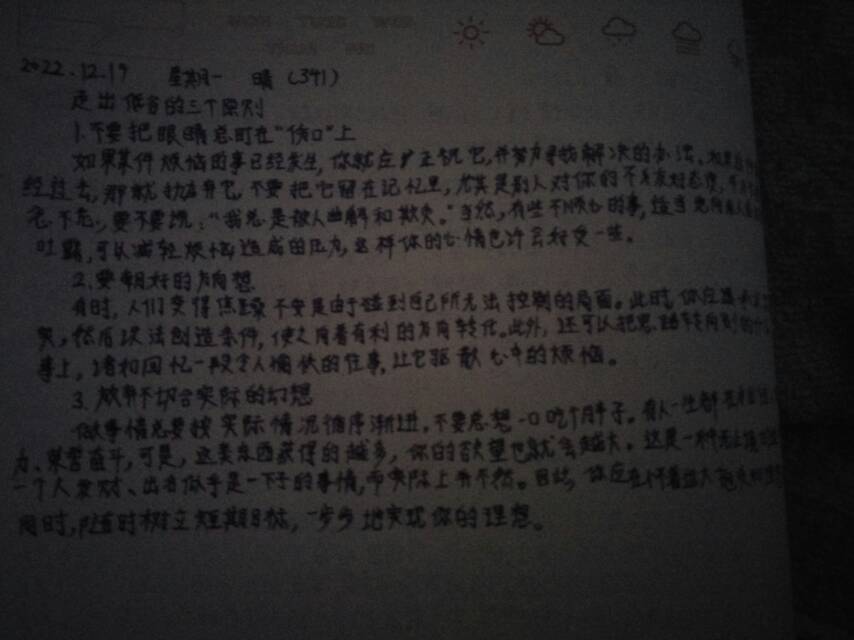 MON TUES WED
THUR FRI
2022.12.19 星期一 晴(341)
走出低谷的三个原则
1.不要把眼睛总盯在“伤口”上
如果某件烦恼的事已经发生,你就应正视它,并努力寻找解决的办法。如果
经过去,那就抛弃它,不要把它留在记忆里,尤其是别人对你的不友好态度,千万
念念不忘,更不要说:“我总是被人曲解和欺负。”当然,有些不顺心的事,适当地向
吐露,可以减轻烦恼造成的压力,这样你的心情也许会好受一些。
2.要朝好的方向想
有时,人们变得焦躁不安是由于碰到自己所无法控制的局面。此时,你应承认
实,然后设法创造条件,使之向着有利的方向转化。此外,还可以把思路转向别的什么
事上,诸如回忆一段令人愉快的往事,让它驱散心中的烦恼。
3.放弃不切合实际的幻想
做事情总要按实际情况循序渐进,不要总想一口吃个胖子。有人一生都在
力、荣誉奋斗,可是,这类东西获得的越多,你的欲望也就会越大。这是一种无止境的
一个人发财、出名似乎是一下子的事情,而实际上并不然。因此,你应在怀着远大抱负和
同时,随时树立短期目标,一步步地实现你的理想。